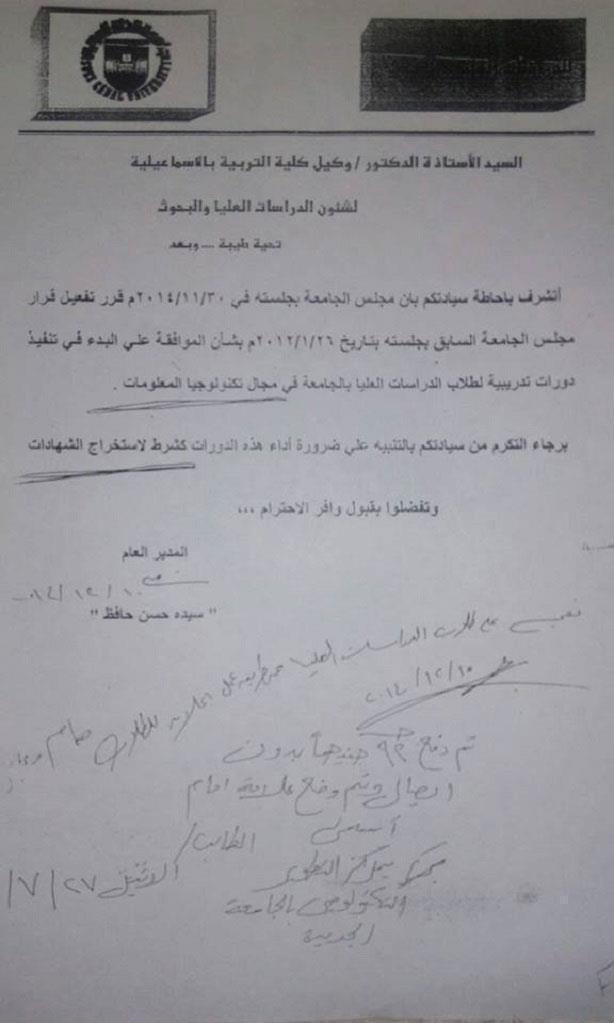 SUEZ CANAL UNIVERSITY
السيد الأستاذة الدكتور / وكيل كلية التربية بالاسماعيلية
لشئون الدراسات العليا والبحوث
تحية طيبة .... وبعد
أتشرف باحاطة سيادتكم بان مجلس الجامعة بجلسته في ٢٠١٤/١١/٣٠م قرر تفعيل قرار
مجلس الجامعة السابق بجلسته بتاريخ ٢٠١٢/١/٢٦م بشأن الموافقة علي البدء في تنفيذ
دورات تدريبية لطلاب الدراسات العليا بالجامعة في مجال تكنولوجيا المعلومات .
برجاء التكرم من سيادتكم بالتنبيه علي ضرورة أداء هذه الدورات كشرط لاستخراج الشهادات
وتفضلوا بقبول وافر الاحترام ،،،
المدير العام
" سيده حسن حافظ "
طلاب الدراسات العليا عن طريق للطلاب
٢٠١٤/١٢/١٥
تم دفع جنيهاً بدون
ايصال وتم وضع علامة امام
الطالب /
بمركز التطوير
الاثنين ٢٧ / ٧ /
التكنولوجى بالجامعة
الجديدة